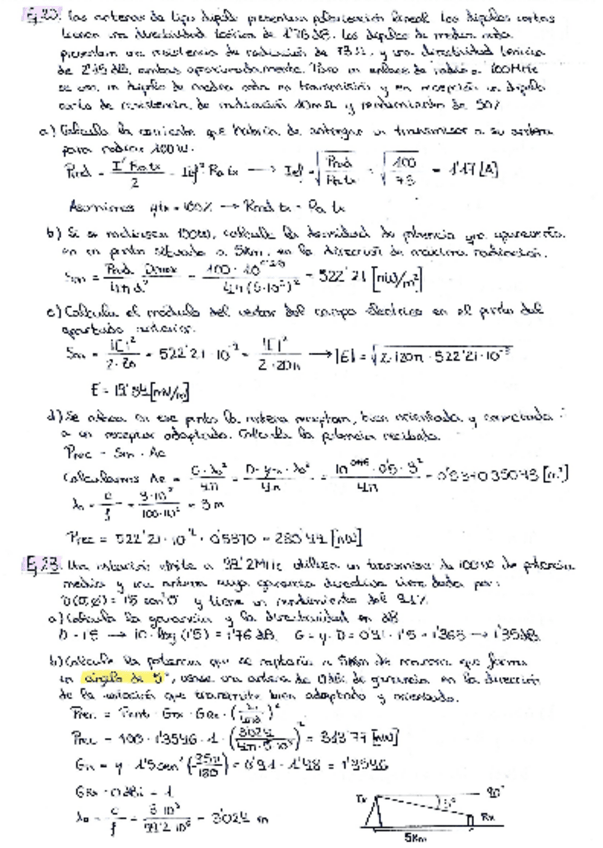 Ej.20. Las antenas de tipo dipolo presentan polarización lineal. Los dipolos cortos
tienen una directividad teórica de 1'76 dB. Los dipolos de media onda
presentan una resistencia de radiación de 73 Ω, y una directividad teórica
de 2'15 dB, ambas aproximadamente. Para un enlace de radio a 100MHz
se usa un dipolo de media onda en transmisión y en recepción un dipolo
corto de resistencia de radiación 10mΩ y rendimiento de 50%
a) Calcula la corriente que habría de entregar un transmisor a su antena
para radiar 100W.
Prad = I² Ra tx / 2 = Ief² Ra tx → Ief = √(Prad / Ra tx) = √(100 / 73) = 1'17 [A]
Asumimos ηtx = 100% → Rrad tx = Ra tx
b) Si se radiasen 100W, calcula la densidad de potencia que aparecería
en un punto situado a 5km, en la dirección de máxima radiación.
Sm = Prad Dmax / 4πd² = 100·10^0'215 / 4π(5·10³)² = 522'21 [nW/m²]
c) Calcula el módulo del vector del campo eléctrico en el punto del
apartado anterior.
Sm = |E|² / 2·Z0 = 522'21·10⁻⁹ = |E|² / 2·120π → |E| = √(2·120π·522'21·10⁻⁹)
E = 19'84 [mV/m]
d) Se coloca en ese punto la antena receptora, bien orientada y conectada
a un receptor adaptado. Calcula la potencia recibida.
Prec = Sm · Ae
Calculamos Ae = G·λ0² / 4π = D·η·λ0² / 4π = 10^0'176·0'5·3² / 4π = 0'537035043 [m²]
λ0 = c / f = 3·10⁸ / 100·10⁶ = 3m
Prec = 522'21·10⁻⁹·0'5370 = 280'44 [nW]
Ej.23. Una estación emite a 99'2MHz utiliza un transmisor de 100W de potencia
media y una antena cuya ganancia directiva viene dada por:
D(θ,φ) = 1'5 cos²θ y tiene un rendimiento del 91%
a) Calcula la ganancia y la directividad en dB
D = 1'5 → 10·log(1'5) = 1'76 dB. G = η·D = 0'91·1'5 = 1'365 → 1'35dB.
b) Calcula la potencia que se captaría a 5km de manera que forma
un ángulo de 5º, usando una antena de 0dBi de ganancia en la dirección
de la estación que transmite bien adaptado y orientado.
Prec = Pent · Gtx · GRx · (λ / 4πd)²
Prec = 100·1'3546·1·(3'024 / 4π·5·10³)² = 313'77 [nW]
Gtx = η 1'5cos²(5π/180) = 0'91·1'48 = 1'3546
GRx = 0dBi = 1
λ0 = c / f = 3·10⁸ / 99'2·10⁶ = 3'024 m
Tx
5º
90º
Rx
5km